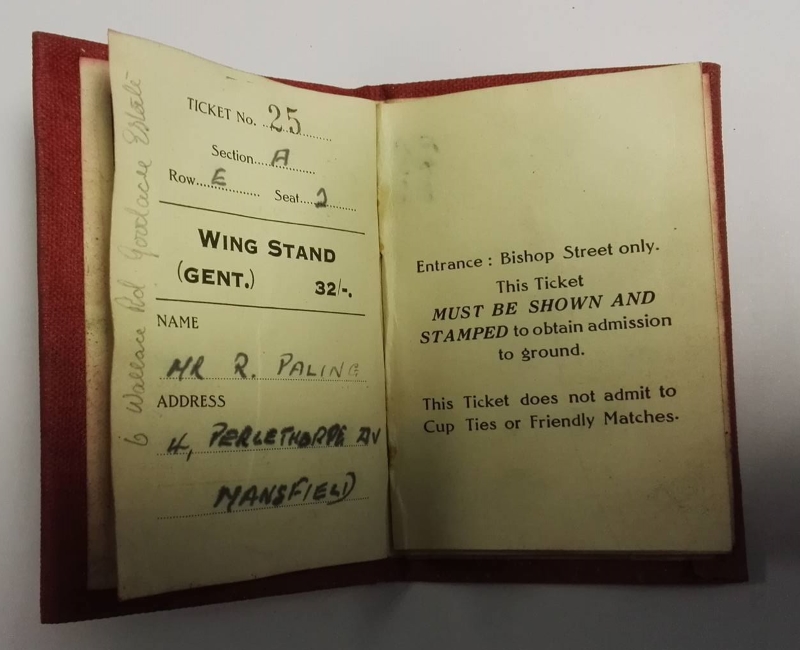 TICKET No. 25
Section A
Row E Seat 2
WING STAND
(GENT.) 32/-.
NAME
MR R. PALING
ADDRESS
4, PERLETHORPE AV
MANSFIELD
6 Wallace Rd. Goodacre Estate
Entrance : Bishop Street only.
This Ticket
MUST BE SHOWN AND
STAMPED to obtain admission
to ground.
This Ticket does not admit to
Cup Ties or Friendly Matches.